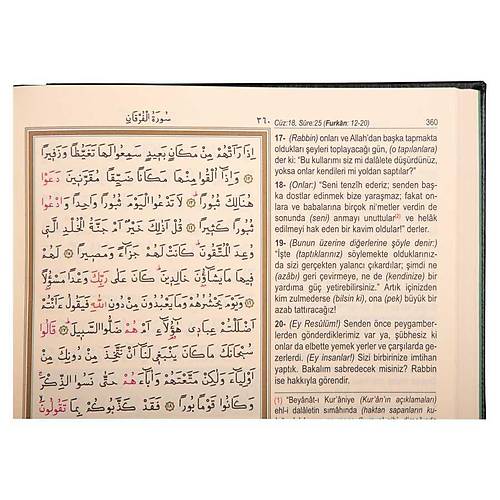 سورة الفرقان
٣٦٠
Cüz:18, Sûre:25 (Furkân: 12-20)
360
اِذَا رَاَتْهُمْ مِنْ مَكَانٍ بَعِيدٍ سَمِعُوا لَهَا تَغَيُّظًا وَزَفِيرًا
وَاِذَا اُلْقُوا مِنْهَا مَكَانًا ضَيِّقًا مُقَرَّنِينَ دَعَوْا
هُنَالِكَ ثُبُورًا لَا تَدْعُوا الْيَوْمَ ثُبُورًا وَاحِدًا وَادْعُوا
ثُبُورًا كَثِيرًا قُلْ اَذٰلِكَ خَيْرٌ اَمْ جَنَّةُ الْخُلْدِ الَّتِي
وُعِدَ الْمُتَّقُونَ كَانَتْ لَهُمْ جَزَاءً وَمَصِيرًا لَهُمْ
فِيهَا مَا يَشَاؤُنَ خَالِدِينَ كَانَ عَلٰى رَبِّكَ وَعْدًا مَسْؤُلًا
وَيَوْمَ يَحْشُرُهُمْ وَمَا يَعْبُدُونَ مِنْ دُونِ اللّٰهِ فَيَقُولُ ءَاَنْتُمْ
اَضْلَلْتُمْ عِبَادِي هٰؤُلَاءِ اَمْ هُمْ ضَلُّوا السَّبِيلَ قَالُوا
سُبْحَانَكَ مَا كَانَ يَنْبَغِي لَنَا اَنْ نَتَّخِذَ مِنْ دُونِكَ مِنْ
اَوْلِيَاءَ وَلٰكِنْ مَتَّعْتَهُمْ وَاٰبَاءَهُمْ حَتّٰى نَسُوا الذِّكْرَ
وَكَانُوا قَوْمًا بُورًا فَقَدْ كَذَّبُوكُمْ بِمَا تَقُولُونَ
17- (Rabbin) onları ve Allah'dan başka tapmakta
oldukları şeyleri toplayacağı gün, (o tapılanlara)
der ki: "Bu kullarımı siz mi dalâlete düşürdünüz,
yoksa onlar kendileri mi yoldan saptılar?"
18- (Onlar:) "Seni tenzîh ederiz; senden baş-
ka dostlar edinmek bize yaraşmaz; fakat on-
lara ve babalarına birçok ni'metler verdin de
sonunda (seni) anmayı unuttular(2) ve helâk
edilmeyi hak eden bir kavim oldular!" derler.
19- (Bunun üzerine diğerlerine şöyle denir:)
"İşte (taptıklarınız) söylemekte olduklarınız-
da sizi gerçekten yalancı çıkardılar; şimdi ne
(azâbı) geri çevirmeye, ne de (kendinize) bir
yardıma güç yetirebilirsiniz." Artık içinizden
kim zulmederse (bilsin ki), ona (pek) büyük bir
azab tattıracağız!
20- (Ey Resûlüm!) Senden önce peygamber-
lerden gönderdiklerimiz var ya, şübhesiz ki
onlar da elbette yemek yerler ve çarşılarda ge-
zerlerdi. (Ey insanlar!) Sizi birbirinize imtihan
yaptık. Bakalım sabredecek misiniz? Rabbin
ise hakkıyla görendir.
(1) "Beyânât-ı Kur'âniye (Kur'ân'ın açıklamaları)
ehl-i dalâletin sımâhında (haktan sapanların ku-